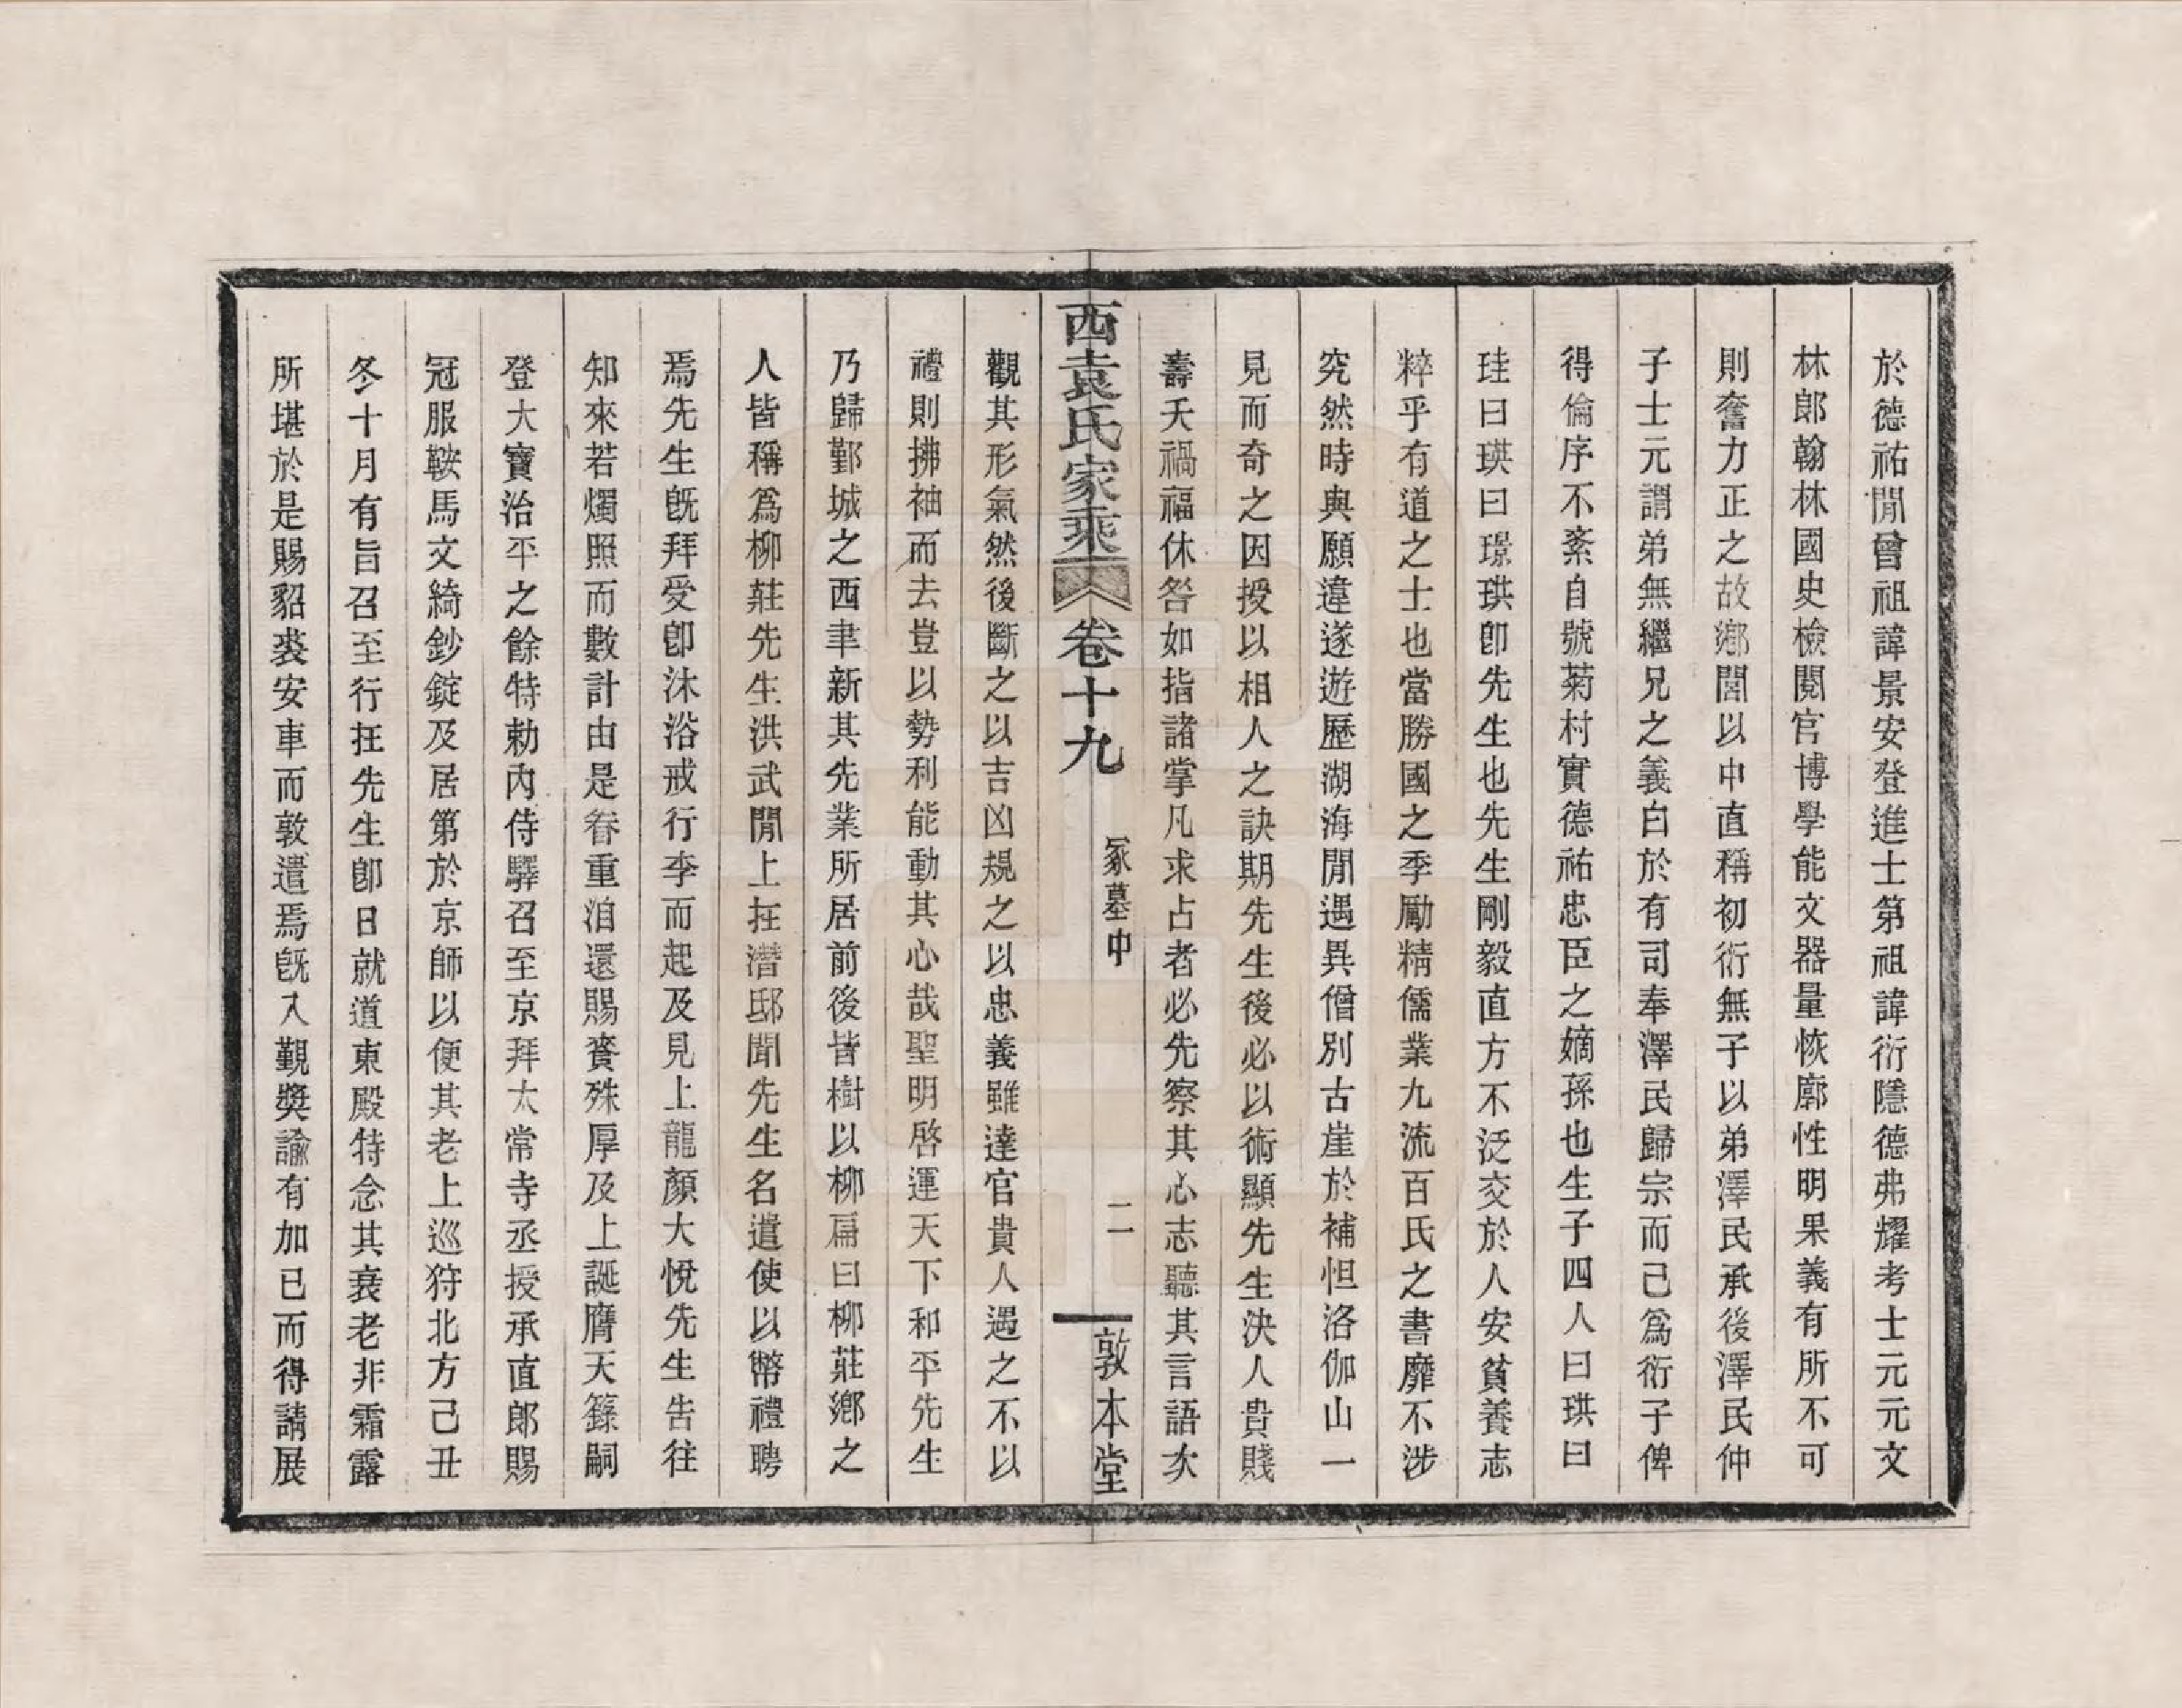 於德祐閒曾祖諱景安登進士第祖諱衍隱德弗耀考士元元文
林郎翰林國史檢閱官博學能文器量恢廓性明果義有所不可
則奮力正之故鄉閭以中直稱初衍無子以弟澤民承後澤民仲
子士元謂弟無繼兄之義白於有司奉澤民歸宗而己爲衍子俾
得倫序不紊自號菊村實德祐忠臣之嫡孫也生子四人曰珙曰
珪曰瑛曰璟珙卽先生也先生剛毅直方不泛交於人安貧養志
粹乎有道之士也當勝國之季勵精儒業九流百氏之書靡不涉
究然時與願違遂遊歷湖海閒遇異僧別古崖於補怛洛伽山一
見而奇之因授以相人之訣期先生後必以術顯先生決人貴賤
壽夭禍福休咎如指諸掌凡求占者必先察其心志聽其言語次
西袁氏家乘 卷十九 冢墓中 二 敦本堂
觀其形氣然後斷之以吉凶規之以忠義雖達官貴人遇之不以
禮則拂袖而去豈以勢利能動其心哉聖明啓運天下和平先生
乃歸鄞城之西聿新其先業所居前後皆樹以柳扁曰柳莊鄉之
人皆稱爲柳莊先生洪武閒上在潛邸聞先生名遣使以幣禮聘
焉先生旣拜受卽沐浴戒行李而起及見上龍顏大悅先生告往
知來若燭照而數計由是眷重洎還賜賚殊厚及上誕膺天籙嗣
登大寶治平之餘特勅內侍驛召至京拜太常寺丞授承直郎賜
冠服鞍馬文綺鈔錠及居第於京師以便其老上巡狩北方己丑
冬十月有旨召至行在先生卽日就道東殿特念其衰老非霜露
所堪於是賜貂裘安車而敦遣焉旣入覲奬諭有加已而得請展